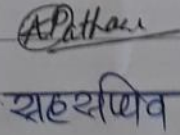 APathan
सहसचिव